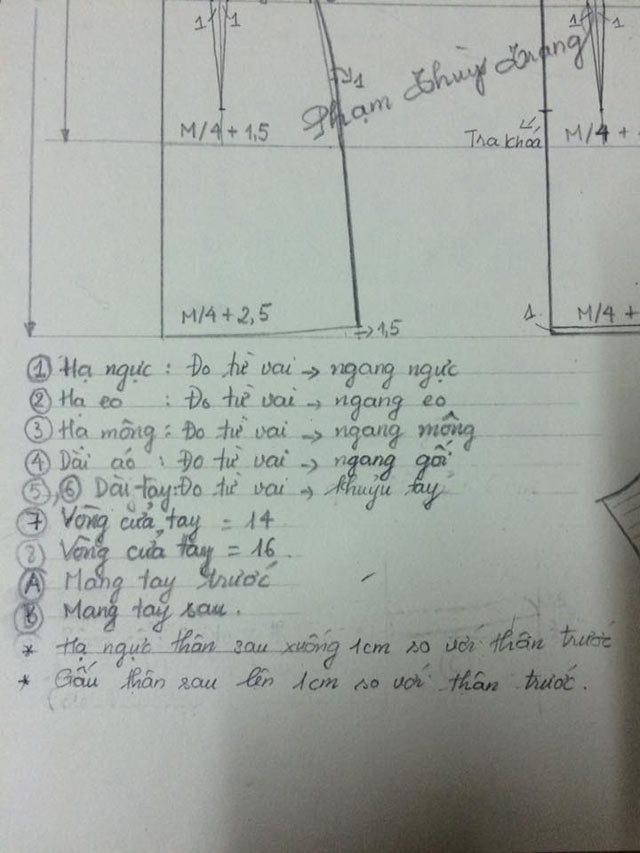 1 1 1 1
1
Phạm Thùy Trang
M/4 + 1,5
Tra khoá
M/4 +
M/4 + 2,5
1,5
1
M/4 +
① Hạ ngực : Đo từ vai → ngang ngực
② Hạ eo : Đo từ vai → ngang eo
③ Hạ mông : Đo từ vai → ngang mông
④ Dài áo : Đo từ vai → ngang gối
⑤, ⑥ Dài tay : Đo từ vai → khuỷu tay
⑦ Vòng cửa tay = 14
⑧ Vòng cửa tay = 16.
Ⓐ Mang tay trước
Ⓑ Mang tay sau.
* Hạ ngực thân sau xuống 1cm so với thân trước
* Gấu thân sau lên 1cm so với thân trước.